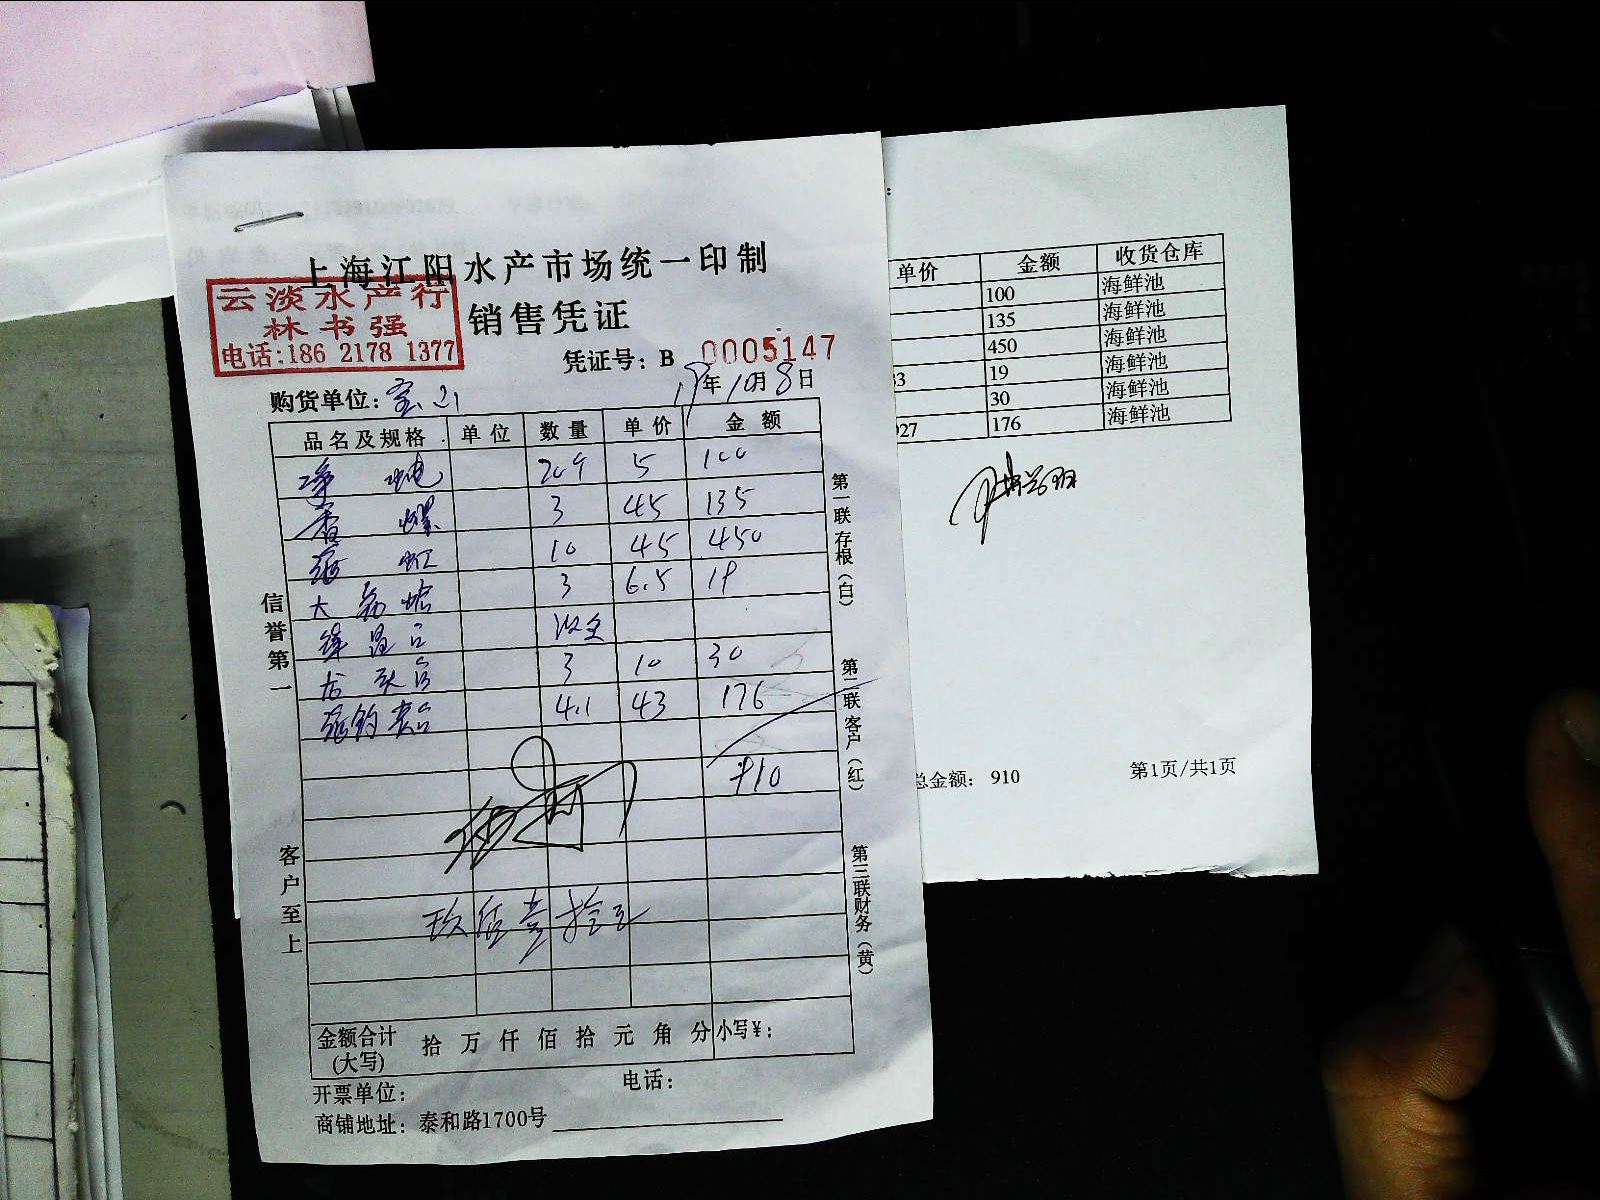 上海江阳水产市场统一印制
云淡水产行
林书强
电话:186 2178 1377
销售凭证
凭证号: B 0005147
购货单位: 宝山
19年10月8日
品名及规格 单位 数量 单价 金额
净 5 100
香螺 3 45 135
10 45 450
大 3 6.5 19
3 10 30
4.1 43 176
910
玖佰壹拾元
金额合计(大写) 拾 万 仟 佰 拾 元 角 分 小写¥:
开票单位: 电话:
商铺地址: 泰和路1700号
信誉第一
客户至上
第一联存根(白)
第二联客户(红)
第三联财务(黄)
单价 金额 收货仓库
100 海鲜池
135 海鲜池
450 海鲜池
33 19 海鲜池
30 海鲜池
927 176 海鲜池
总金额: 910 第1页/共1页